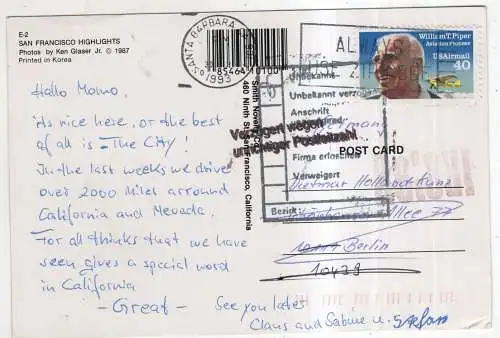 E-2
SAN FRANCISCO HIGHLIGHTS
Photos by Ken Glaser Jr. © 1987
Printed in Korea
Hallo Momo,
its nice here, or the best
of all is - The City!
In the last weeks we drive
over 2000 Miles arround
California and Nevada.
For all thinks that we have
seen gives a special word
in California
- Great -
See you later
Claus and Sabine u. Stefan
SANTA BARBARA
1993
85464 10100
Smith Novelty Co.
460 Ninth St. San Francisco, California
ALWAYS
USE ZIP CODE
William T. Piper
Aviation Pioneer
USAirmail
40
Unbekannt
Unbekannt verzogen
Anschrift
Firma erloschen
Verweigert
Bezirk:
Verzögert wegen
unrichtiger Postleitzahl
Germany
POST CARD
Dietmar
Allee 77
Berlin
10439